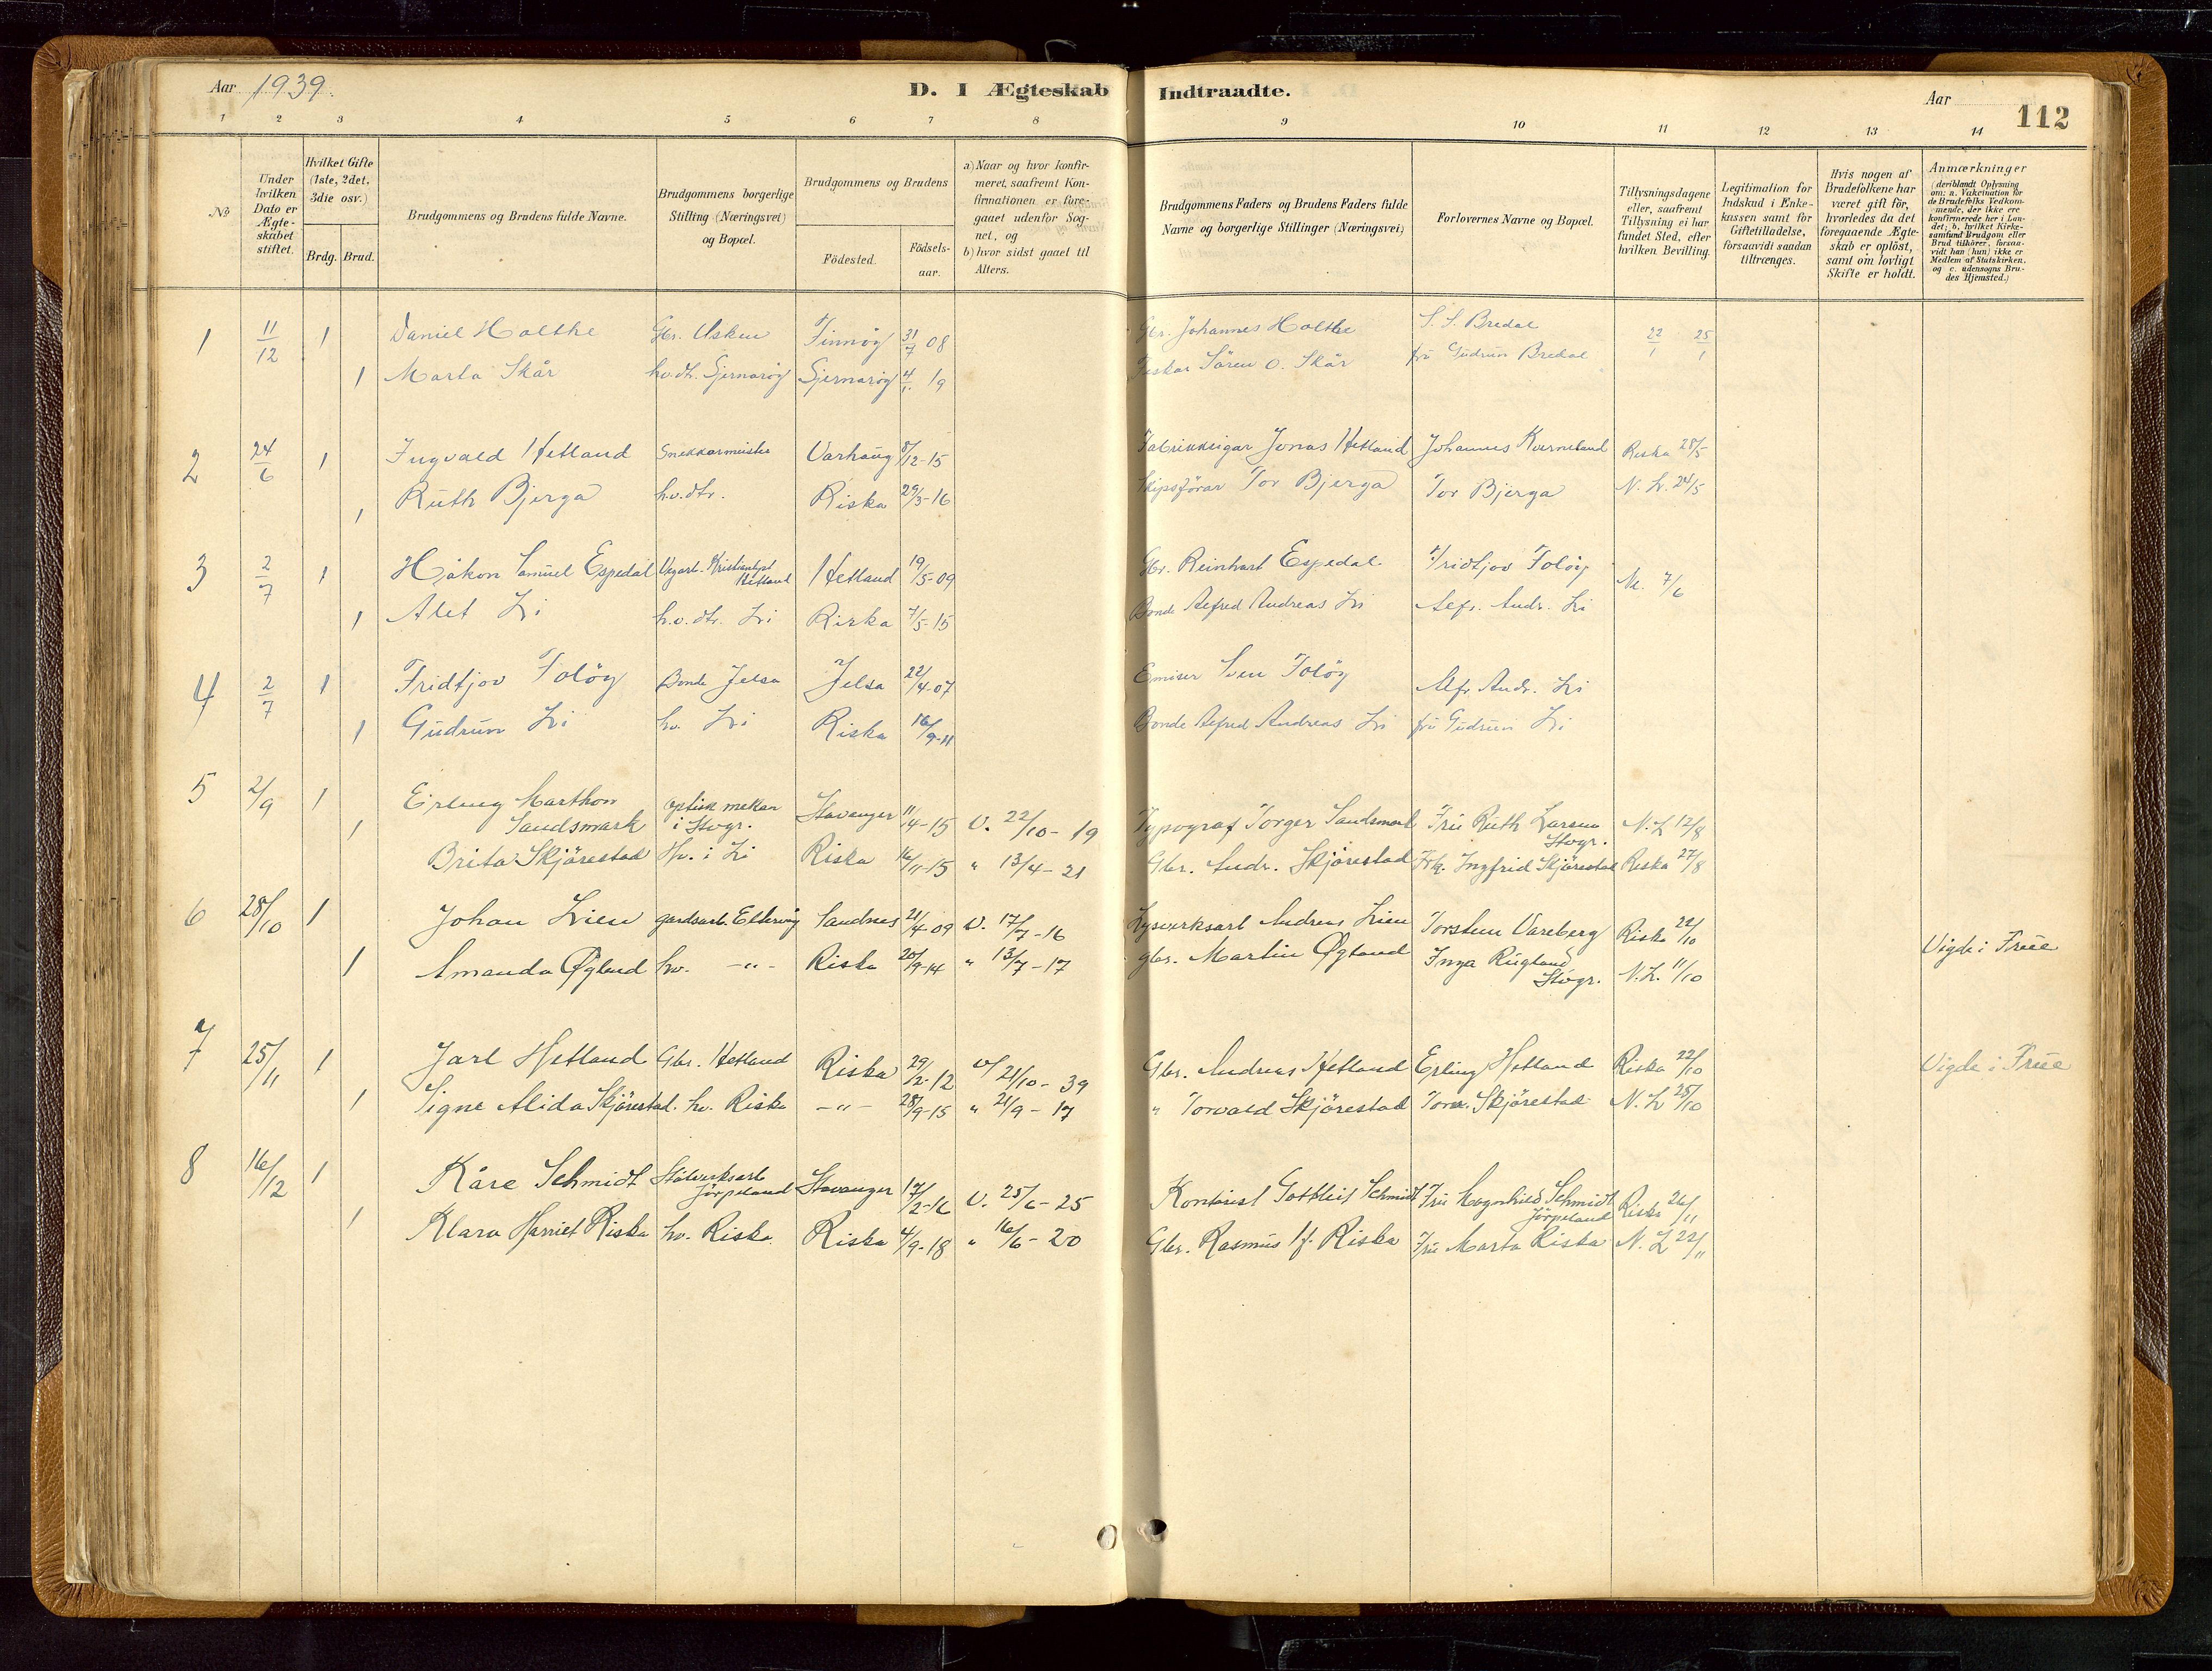 Aar 1939.
D. I Ægteskab Indtraadte.
Aar
112
1 2 3 4 5 6 7 8 9 10 11 12 13 14
No
Under hvilken Dato er Ægte-skabet stiftet.
Hvilket Gifte (1ste, 2det, 3die osv.)
Brdg. Brud.
Brudgommens og Brudens fulde Navne.
Brudgommens borgerlige Stilling (Næringsvei) og Bopæl.
Brudgommens og Brudens
Födested.
Födsels-aar.
a) Naar og hvor konfir-meret, saafremt Kon-firmationen er fore-gaaet udenfor Sog-net, og
b) hvor sidst gaaet til Alters.
Brudgommens Faders og Brudens Faders fulde Navne og borgerlige Stillinger (Næringsvei)
Forlovernes Navne og Bopæl.
Tillysningsdagene eller, saafremt Tillysning ei har fundet Sted, efter hvilken Bevilling.
Legitimation for Indskud i Enke-kassen samt for Giftetilladelse, forsaavidt saadan tiltrænges.
Hvis nogen af Brudefolkene har været gift för, hvorledes da det foregaaende Ægte-skab er oplöst, samt om lovligt Skifte er holdt.
Anmærkninger (deriblandt Oplysning om: a. Vakcination för de Brudefolks Vedkom-mende, der ikke ere konfirmerede her i Lan-det; b. hvilket Kirke-samfund Brudgom eller Brud tilhörer, forsaa-vidt han (hun) ikke er Medlem af Statskirken, og c. udensogns Bru-des Hjemsted.)
1 11/12 1 Daniel Holthe Gbr. Usken Finnöy 31/7 08 Gbr. Johannes Holthe S. S. Bredal 22/1 25/1
1 Marta Skår hv.dtr. Sjernaröy Sjernaröy 4/1 19 Fiskar Sören O. Skår frü Güdrün Bredal
2 24/6 1 Ingvald Hetland Snekkarmeister Varhaug 8/12-15 Fabrikkeigar Jonas Hetland Johannes Kverneland Riska 28/5
1 Ruth Bjerga h.v.dtr. Riska 29/3-16 Skipsförar Tor Bjerga Tor Bjerga N. L. 24/5
3 2/7 1 Håkon Samuel Espedal Hetland Hetland 19/5-09 Gbr. Reinhart Espedal Fridtjov Foløy 7/6
1 Alet Li h.v. dtr. Li Riska 7/5-15 Bonde Alfred Andreas Li Alfr. Andr. Li
4 2/7 1 Fridtjov Foløy Bonde Jelsa Jelsa 22/4-07 Sven Foløy Alfr. Andr. Li
1 Gudrun Li hv. Li Riska 16/9-11 Bonde Alfred Andreas Li frü Gudrun Li
5 2/9 1 Erling Marthon Sandsmark optisk mekan i Stvgr. Stavanger 11/4-15 V. 22/10-19 Typograf Torger Sandsmark Frü Ruth Larsen Stvgr. N. L 12/8
1 Brita Skjörestad Hv. i Li Riska 16/11-15 " 13/4-21 Gbr. Andr. Skjörestad Frk. Ingfrid Skjörestad Riska 27/8
6 28/10 1 Johan Lien gardsarb. Eltervåg Sandnes 21/4-09 V. 17/7-16 Lysverksarb Andreas Lien Torstein Vareberg Riska 22/10 Vigde i Frue
1 Amanda Øgland hv. -"- Riska 20/9-14 " 13/7-17 gbr. Martin Øgland Inga Rugland Stvgr. N. L. 11/10
7 25/11 1 Jarl Hetland Gbr. Hetland Riska 29/2-12 v/ 21/10-39 Gbr. Andreas Hetland Erling Hetland Riska 22/10 Vigde i Frue
1 Signe Alida Skjörestad. hv. Riska -"- 28/9-15 " 21/9-17 " Torvald Skjörestad Torv. Skjörestad N. L 25/10
8 16/12 1 Kåre Schmidt Stålverksarb Jörpeland Stavanger 17/2-16 V. 25/6-25 Kontorist Gottleif Schmidt Frü Magnhild Schmidt Jörpeland Riska 26/11
1 Klara Harriet Riska hv. Riska Riska 4/9-18 " 16/6-20 Gbr. Rasmus H. Riska Frü Marta Riska N. L 22/11